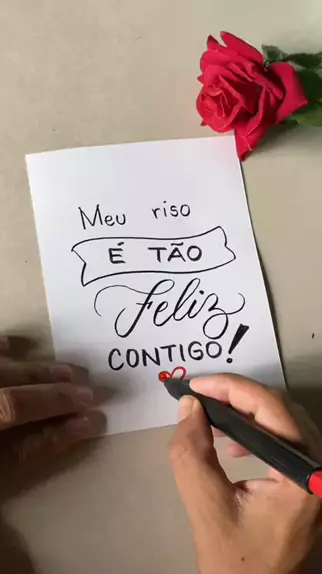 Meu riso
É TÃO
Feliz
CONTIGO!